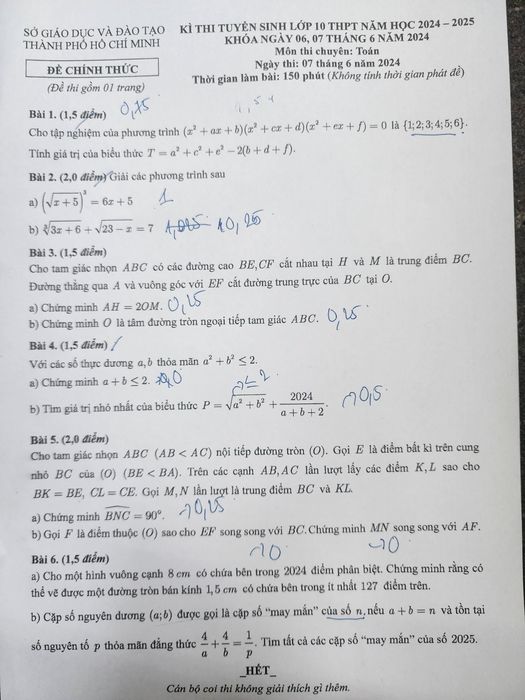 SỞ GIÁO DỤC VÀ ĐÀO TẠO
THÀNH PHỐ HỒ CHÍ MINH
ĐỀ CHÍNH THỨC
(Đề thi gồm 01 trang)
KÌ THI TUYỂN SINH LỚP 10 THPT NĂM HỌC 2024 – 2025
KHÓA NGÀY 06, 07 THÁNG 6 NĂM 2024
Môn thi chuyên: Toán
Ngày thi: 07 tháng 6 năm 2024
Thời gian làm bài: 150 phút (Không tính thời gian phát đề)
Bài 1. (1,5 điểm) 0,75
Cho tập nghiệm của phương trình (x² + ax + b)(x² + cx + d)(x² + ex + f) = 0 là {1;2;3;4;5;6}.
Tính giá trị của biểu thức T = a² + c² + e² − 2(b + d + f).
Bài 2. (2,0 điểm) Giải các phương trình sau
a) (√(x + 5))³ = 6x + 5 1
b) ∛(3x + 6) + √(23 − x) = 7
Bài 3. (1,5 điểm)
Cho tam giác nhọn ABC có các đường cao BE,CF cắt nhau tại H và M là trung điểm BC.
Đường thẳng qua A và vuông góc với EF cắt đường trung trực của BC tại O.
a) Chứng minh AH = 2OM. 0,25
b) Chứng minh O là tâm đường tròn ngoại tiếp tam giác ABC. 0,25
Bài 4. (1,5 điểm)
Với các số thực dương a,b thỏa mãn a² + b² ≤ 2.
a) Chứng minh a + b ≤ 2.
b) Tìm giá trị nhỏ nhất của biểu thức P = √(a² + b²) + 2024/(a + b + 2).
Bài 5. (2,0 điểm)
Cho tam giác nhọn ABC (AB < AC) nội tiếp đường tròn (O). Gọi E là điểm bất kì trên cung
nhỏ BC của (O) (BE < BA). Trên các cạnh AB,AC lần lượt lấy các điểm K,L sao cho
BK = BE, CL = CE. Gọi M,N lần lượt là trung điểm BC và KL.
a) Chứng minh BNC = 90°.
b) Gọi F là điểm thuộc (O) sao cho EF song song với BC.Chứng minh MN song song với AF.
Bài 6. (1,5 điểm)
a) Cho một hình vuông cạnh 8 cm có chứa bên trong 2024 điểm phân biệt. Chứng minh rằng có
thể vẽ được một đường tròn bán kính 1,5 cm có chứa bên trong ít nhất 127 điểm trên.
b) Cặp số nguyên dương (a;b) được gọi là cặp số “may mắn” của số n, nếu a + b = n và tồn tại
số nguyên tố p thỏa mãn đẳng thức 4/a + 4/b = 1/p. Tìm tất cả các cặp số “may mắn” của số 2025.
_HẾT_
Cán bộ coi thi không giải thích gì thêm.